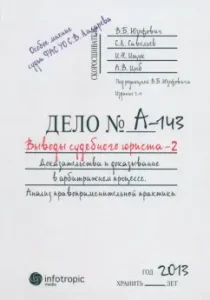 Особое мнение
судьи ФАС УО С.В. Лазарева
СКОРОСШИВАТЕЛЬ
В.Б. Юзефович
С.Л. Савельев
И.Н.
А.В.
Под редакцией В.Б. Юзефовича
Издание 2-е
ДЕЛО № А-143
Выводы судебного юриста-2
Доказательства и доказывание
в арбитражном процессе.
Анализ правоприменительной практики
infotropic
media
ГОД 2013
ХРАНИТЬ ЛЕТ